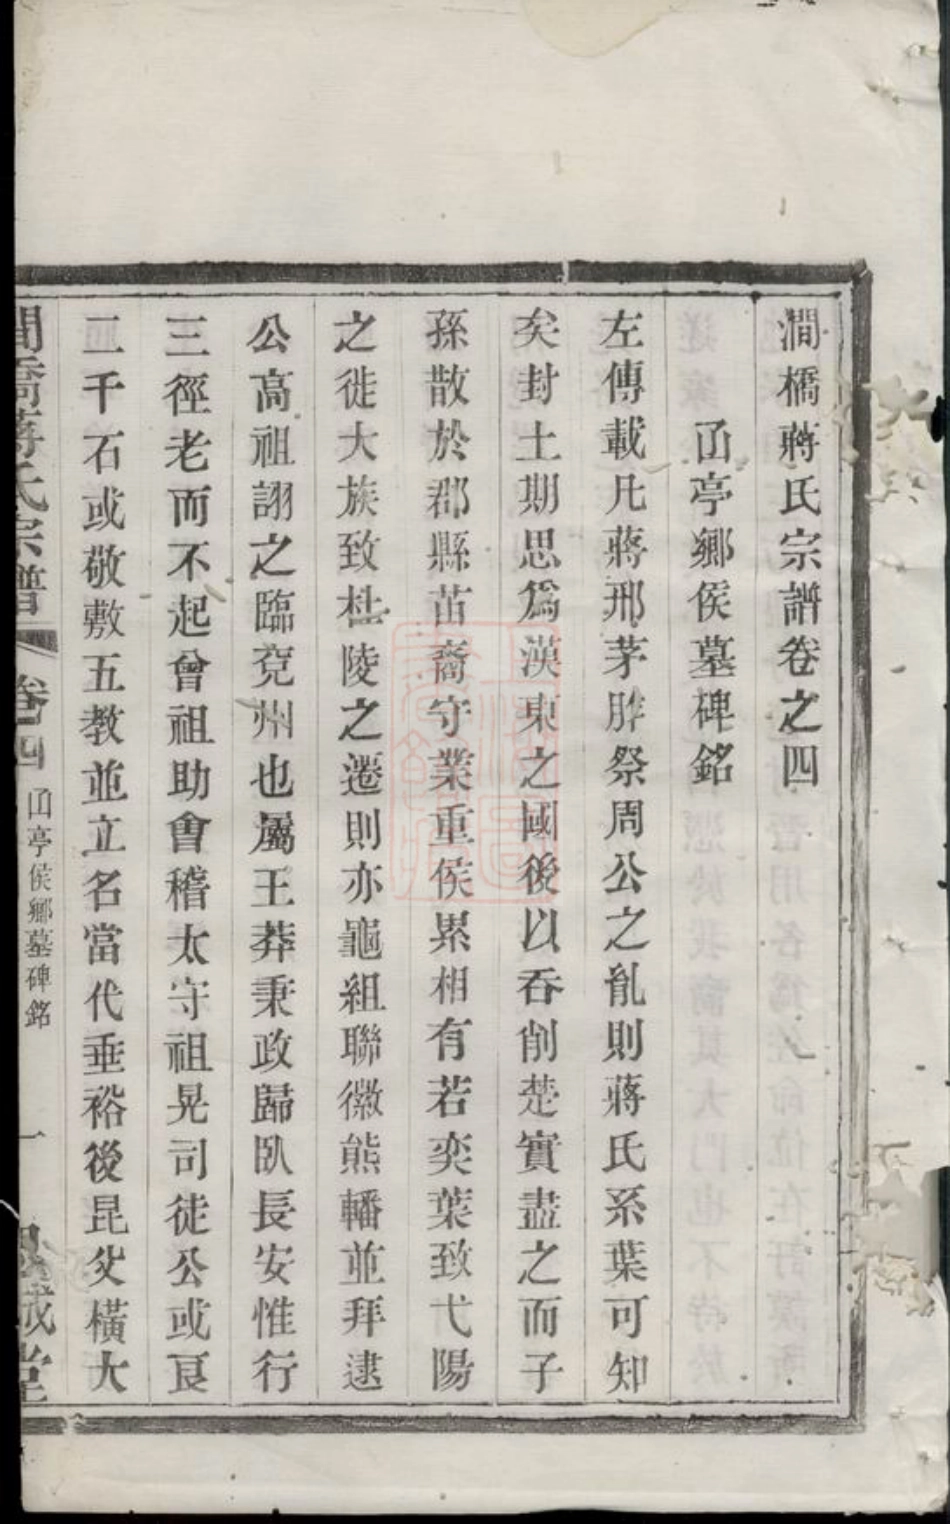 澗橋蔣氏宗譜卷之四
凾亭鄉侯墓碑銘
左傳載凡蔣邢茅胙祭周公之胤則蔣氏系葉可知
矣封土期思爲漢東之國後以吞削楚實盡之而子
孫散於郡縣苗裔守業重侯累相有若奕葉致弋陽
之徙大族致杜陵之遷則亦龜組聯徽熊轓並拜逮
公高祖詡之臨兖州也屬王莽秉政歸臥長安惟行
三徑老而不起曾祖助會稽太守祖晃司徒公或良
二千石或敬敷五教並立名當代垂裕後昆父橫大
澗橋蔣氏宗譜
卷四
凾亭侯鄉墓碑銘
一
誠堂